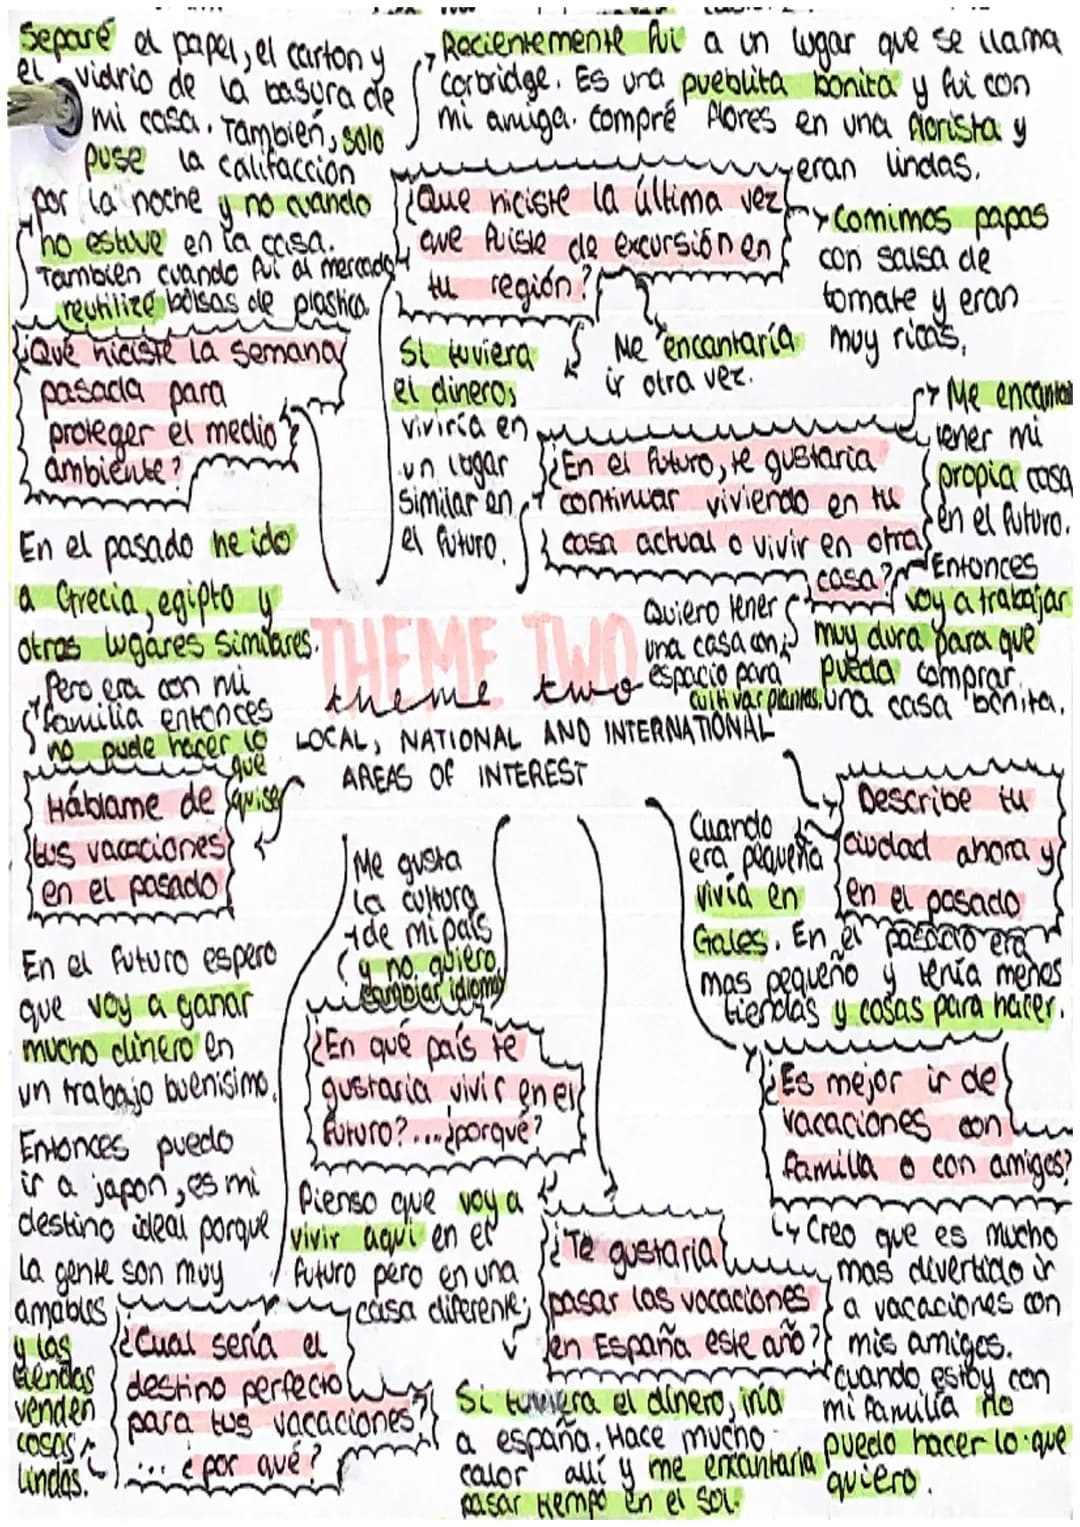 Separé el papel, el carton y
el vidrio de la basura de
mi casa. También, solo
puse la califacción
por la noche y no cuando
no estuve en la casa.
También cuando fui al mercado
reutilizé bolsas de plastica.
¿Qué hiciste la semana
pasada para
proteger el medio
ambiente?
Recientemente fui a un lugar que se llama
corbridge. Es una pueblita bonita y fui con
mi amiga. compré flores en una florista y
eran lindas.
¿Que hiciste la última vez
que fuiste de excursión en
tu región?
Comimos papas
con salsa de
tomate y eran
muy ricas.
Me encantaría
ir otra vez.
Si tuviera
el dinero,
viviría en
un lugar
similar en
el futuro.
¿En el futuro, te gustaria
continuar viviendo en tu
casa actual o vivir en otra
casa?
Me encanta
tener mi
propia casa
en el futuro.
Entonces
voy a trabajar
muy dura para que
pueda comprar
una casa bonita.
Quiero tener
una casa con
espacio para
cultivar plantas.
THEME TWO
theme two
LOCAL, NATIONAL AND INTERNATIONAL
AREAS OF INTEREST
En el pasado he ido
a Grecia, egipto y
otros lugares similares.
Pero era con mi
familia entonces
no pude hacer lo
que
quise
Háblame de
tus vacaciones
en el pasado
En el futuro espero
que voy a ganar
mucho dinero en
un trabajo buenisimo.
Entonces puedo
ir a japon, es mi
destino ideal porque
la gente son muy
amables
y las
tiendas
venden
cosas
lindas.
¿Cual sería el
destino perfecto
para tus vacaciones?
... ¿por qué?
Me gusta
la cultura
de mi país
y no quiero
cambiar idioma
¿En qué país te
gustaria vivir en el
futuro?...¿porqué?
Pienso que voy a
vivir aquí en el
futuro pero en una
casa diferente;
¿Te gustaria
pasar las vacaciones
en España este año?
Si tuviera el dinero, iria
a españa. Hace mucho
calor allí y me encantaría
pasar tiempo en el sol.
Describe tu
ciudad ahora y
en el pasado
Cuando
era pequeña
vivía en
Gales. En el pasado era
mas pequeño y tenía menos
tiendas y cosas para hacer.
¿Es mejor ir de
vacaciones con
familia o con amigos?
Creo que es mucho
mas divertido ir
a vacaciones con
mis amigos.
cuando estoy con
mi familia no
puedo hacer lo que
quiero.